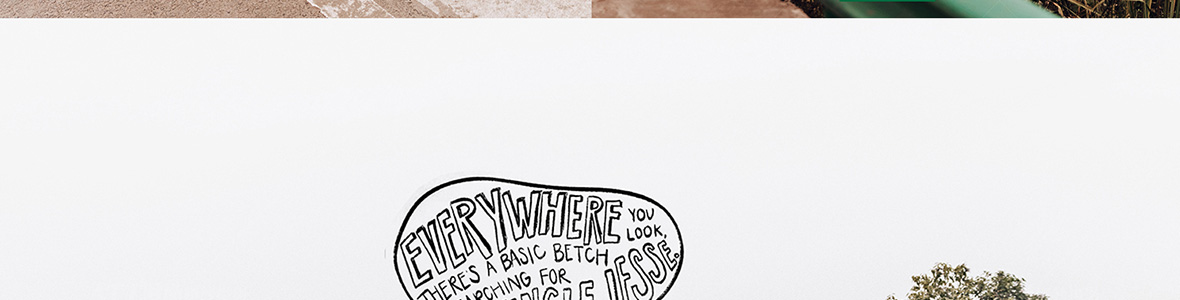 EVERYWHERE YOU LOOK,
THERE'S A BASIC BETCH
SEARCHING FOR
UNCLE JESSE.